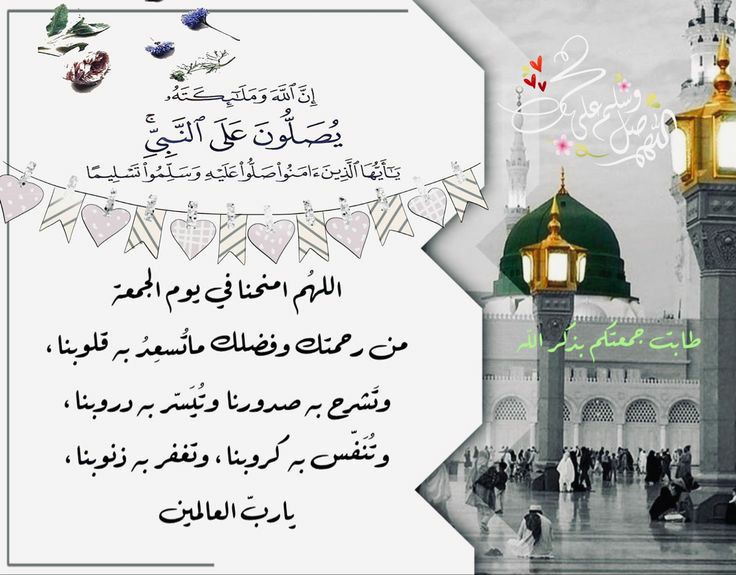 إِنَّ ٱللَّهَ وَمَلَـٰٓئِكَتَهُۥ
يُصَلُّونَ عَلَى ٱلنَّبِيِّۚ
يَـٰٓأَيُّهَا ٱلَّذِينَ ءَامَنُوا۟ صَلُّوا۟ عَلَيْهِ وَسَلِّمُوا۟ تَسْلِيمًا
اللهُم امنحنا في يوم الجمعة
من رحمتك وفضلك ماتُسعِدُ به قلوبنا،
وتَشرح به صدورنا وتُيَسّر به دروبنا،
وتُنَفّس به كروبنا، وتغفر به ذنوبنا،
ياربّ العالمين
اللهم صل وسلم على محمد
طابت جمعتكم بذكر الله